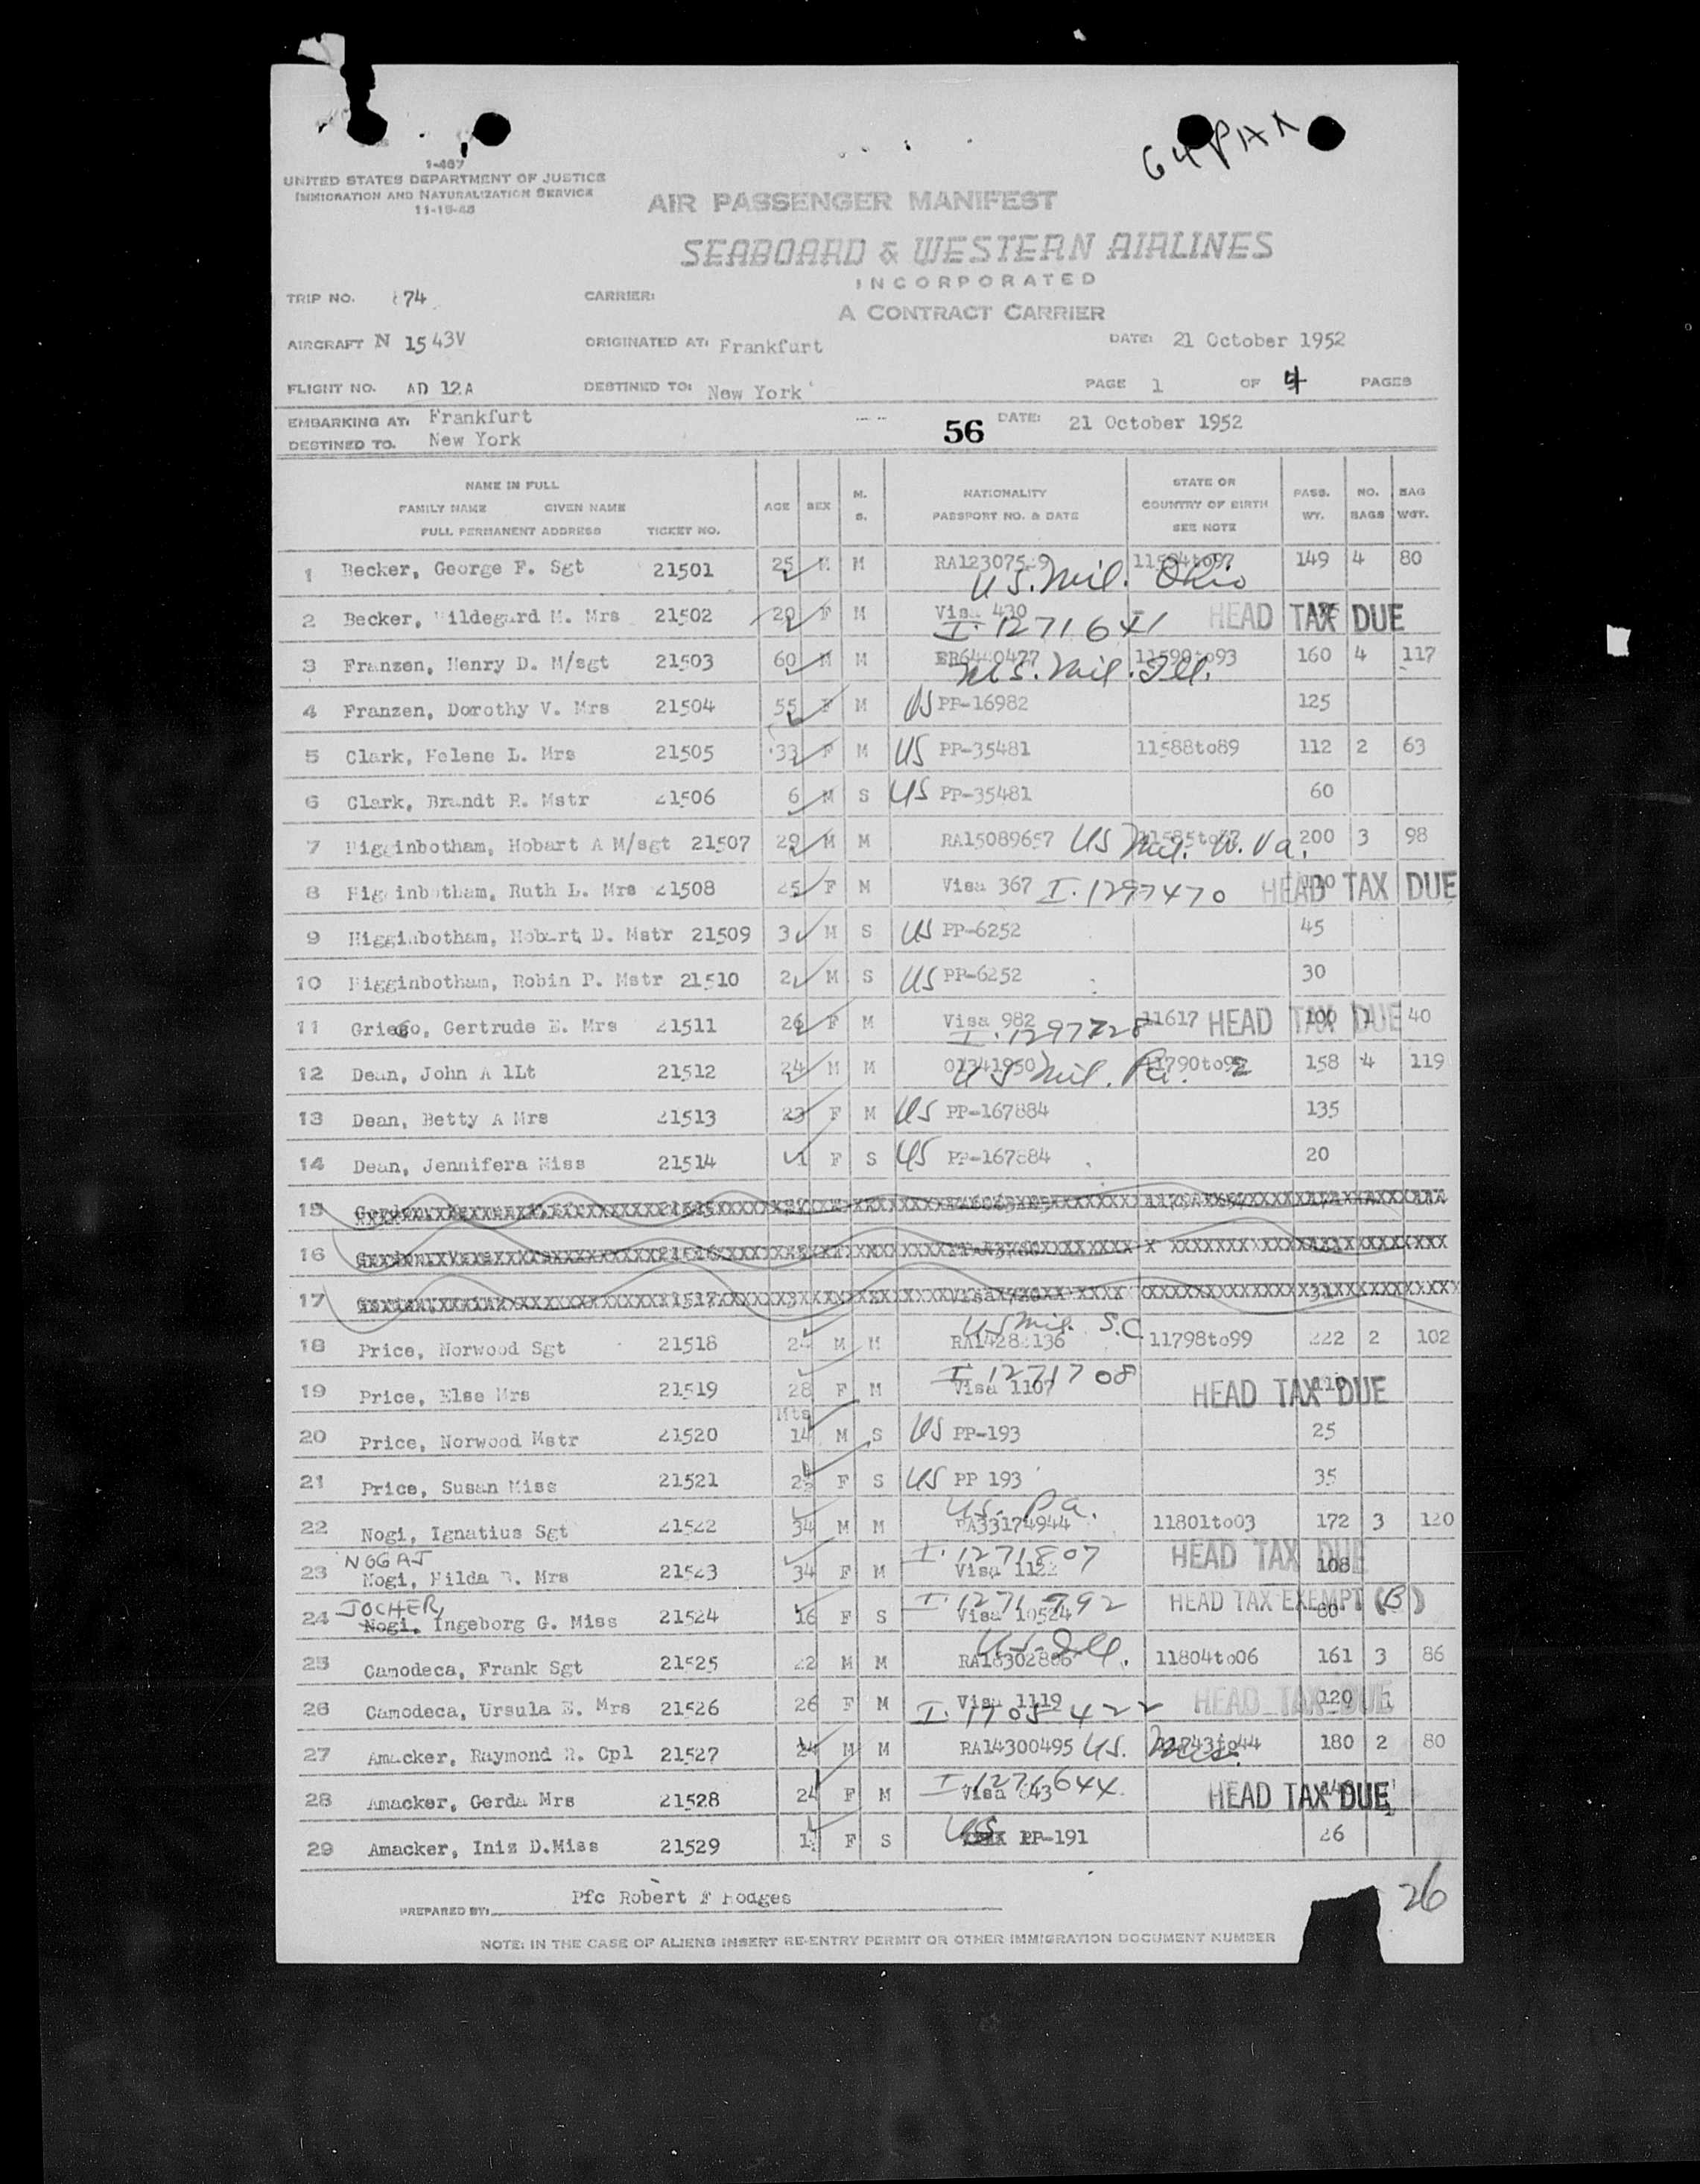 64 PAX
1-467
UNITED STATES DEPARTMENT OF JUSTICE
IMMIGRATION AND NATURALIZATION SERVICE
11-15-48
AIR PASSENGER MANIFEST
SEABOARD & WESTERN AIRLINES
INCORPORATED
A CONTRACT CARRIER
TRIP NO. 74 CARRIER:
AIRCRAFT N 1543V ORIGINATED AT: Frankfurt DATE: 21 October 1952
FLIGHT NO. AD 12A DESTINED TO: New York PAGE 1 OF 4 PAGES
EMBARKING AT: Frankfurt 56 DATE: 21 October 1952
DESTINED TO. New York
NAME IN FULL
FAMILY NAME GIVEN NAME
FULL PERMANENT ADDRESS TICKET NO.
AGE SEX M. S. NATIONALITY PASSPORT NO. & DATE STATE OR COUNTRY OF BIRTH SEE NOTE PASS. WT. NO. BAGS BAG WGT.
1 Becker, George F. Sgt 21501 25 M M 149 4 80
U.S. Mil. Ohio
2 Becker, Hildegard M. Mrs 21502 F M Visa 430 HEAD TAX DUE
I.1271641
3 Franzen, Henry D. M/sgt 21503 60 M M 11590to93 160 4 117
U.S. Mil. Ill.
4 Franzen, Dorothy V. Mrs 21504 55 F M US PP-16982 125
5 Clark, Helene L. Mrs 21505 33 F M US PP-35481 11588to89 112 2 63
6 Clark, Brandt R. Mstr 21506 6 M S US PP-35481 60
7 Higginbotham, Hobart A M/sgt 21507 29 M M RA15089657 US Mil. W. Va. 200 3 98
8 Higginbotham, Ruth L. Mrs 21508 25 F M Visa 367 I.1297470 HEAD TAX DUE
9 Higginbotham, Hobart D. Mstr 21509 3 M S US PP-6252 45
10 Higginbotham, Robin P. Mstr 21510 2 M S US PP-6252 30
11 Griego, Gertrude E. Mrs 21511 26 F M Visa 982 11617 HEAD TAX DUE 40
I.1297728
12 Dean, John A 1Lt 21512 24 M M 158 4 119
US Mil. Pa.
13 Dean, Betty A Mrs 21513 23 F M US PP-167884 135
14 Dean, Jennifera Miss 21514 1 F S US PP-167884 20
15
16
17
US Mil. S.C.
18 Price, Norwood Sgt 21518 M M 11798to99 222 2 102
I.1271708
19 Price, Else Mrs 21519 28 F M Visa 1107 HEAD TAX DUE
Mts
20 Price, Norwood Mstr 21520 14 M S US PP-193 25
21 Price, Susan Miss 21521 F S US PP 193 35
U.S. Pa.
22 Nogi, Ignatius Sgt 21522 34 M M RA33174944 11801to03 172 3 120
NOGAJ I.1271807 HEAD TAX DUE
23 Nogi, Hilda B. Mrs 21523 34 F M 108
JOCHER, HEAD TAX EXEMPT (B)
24 Nogi, Ingeborg G. Miss 21524 16 F S Visa 10524 80
U.S. Ill.
25 Camodeca, Frank Sgt 21525 22 M M 11804to06 161 3 86
26 Camodeca, Ursula E. Mrs 21526 26 F M Visa 1119 HEAD TAX DUE 120
27 Amacker, Raymond R. Cpl 21527 24 M M RA14300495 US. 180 2 80
I.1271644
28 Amacker, Gerda Mrs 21528 24 F M HEAD TAX DUE
US
29 Amacker, Iniz D.Miss 21529 F S PP-191 26
26
PREPARED BY: Pfc Robert F Hodges
NOTE: IN THE CASE OF ALIENS INSERT RE-ENTRY PERMIT OR OTHER IMMIGRATION DOCUMENT NUMBER